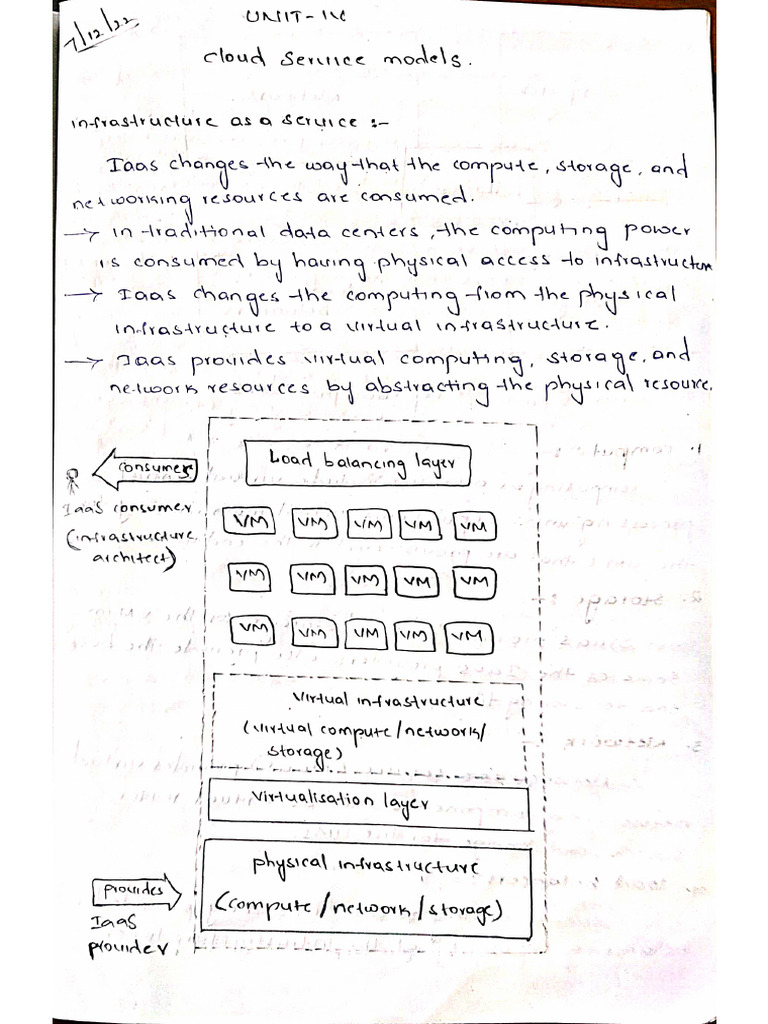 7/12/22
UNIT-IV
Cloud Service models.
infrastructure as a service :-
Iaas changes the way that the compute, storage, and
networking resources are consumed.
→ in traditional data centers, the computing power
is consumed by having physical access to infrastructure
→ Iaas changes the computing from the physical
infrastructure to a virtual infrastructure.
→ Iaas provides virtual computing, storage, and
network resources by abstracting the physical resource.
Load balancing layer
consumes
Iaas consumer
(infrastructure
architect)
VM VM VM VM VM
VM VM VM VM VM
VM VM VM VM VM
Virtual infrastructure
(virtual compute/network/
storage)
Virtualisation layer
physical infrastructure
(compute/network/storage)
provides
IaaS
provider